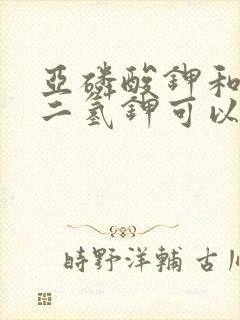 亞磷酸鉀和
二氢鉀可以
時野洋輔 古川